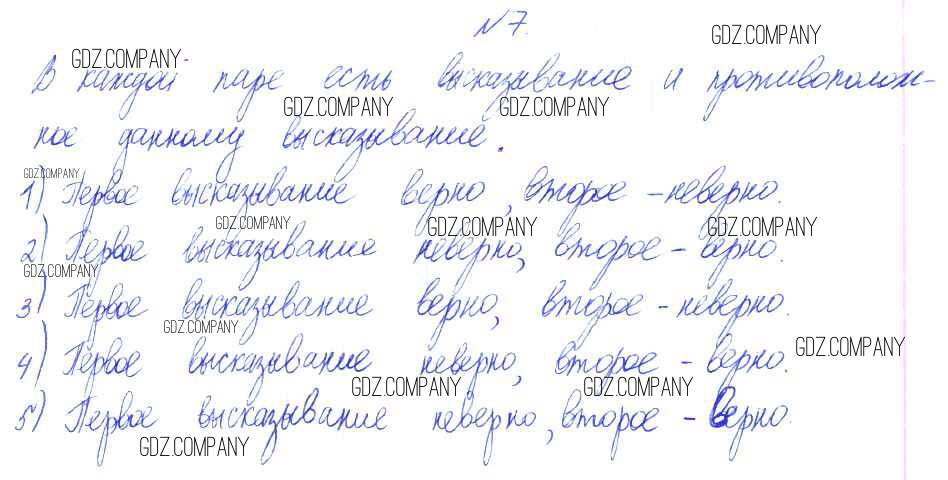 №7.
GDZ.COMPANY
GDZ.COMPANY
В каждой паре есть высказывание и противополож-
GDZ.COMPANY GDZ.COMPANY
ное данному высказывание.
GDZ.COMPANY
1) Первое высказывание верно, второе - неверно.
GDZ.COMPANY GDZ.COMPANY GDZ.COMPANY
2) Первое высказывание неверно, второе - верно.
GDZ.COMPANY
3) Первое высказывание верно, второе - неверно.
GDZ.COMPANY
GDZ.COMPANY
4) Первое высказывание неверно, второе - верно.
GDZ.COMPANY GDZ.COMPANY
5) Первое высказывание неверно, второе - верно.
GDZ.COMPANY